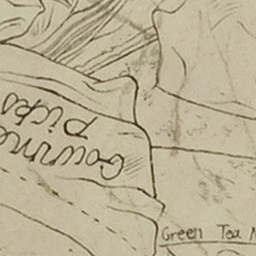 Gourme
picks
Green Tea